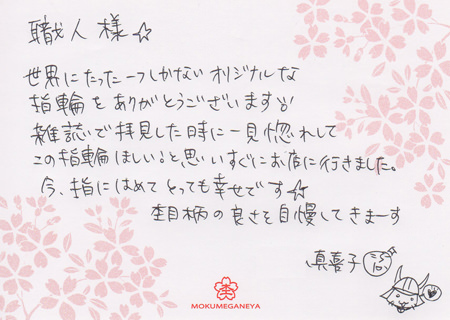 職人様☆
世界にたった一つしかないオリジナルな
指輪をありがとうございます!!
雑誌で拝見した時に一見惚れして
この指輪ほしい!と思いすぐにお店に行きました。
今、指にはめてとっても幸せです☆
杢目柄の良さを自慢してきまーす
真喜子
MOKUMEGANEYA